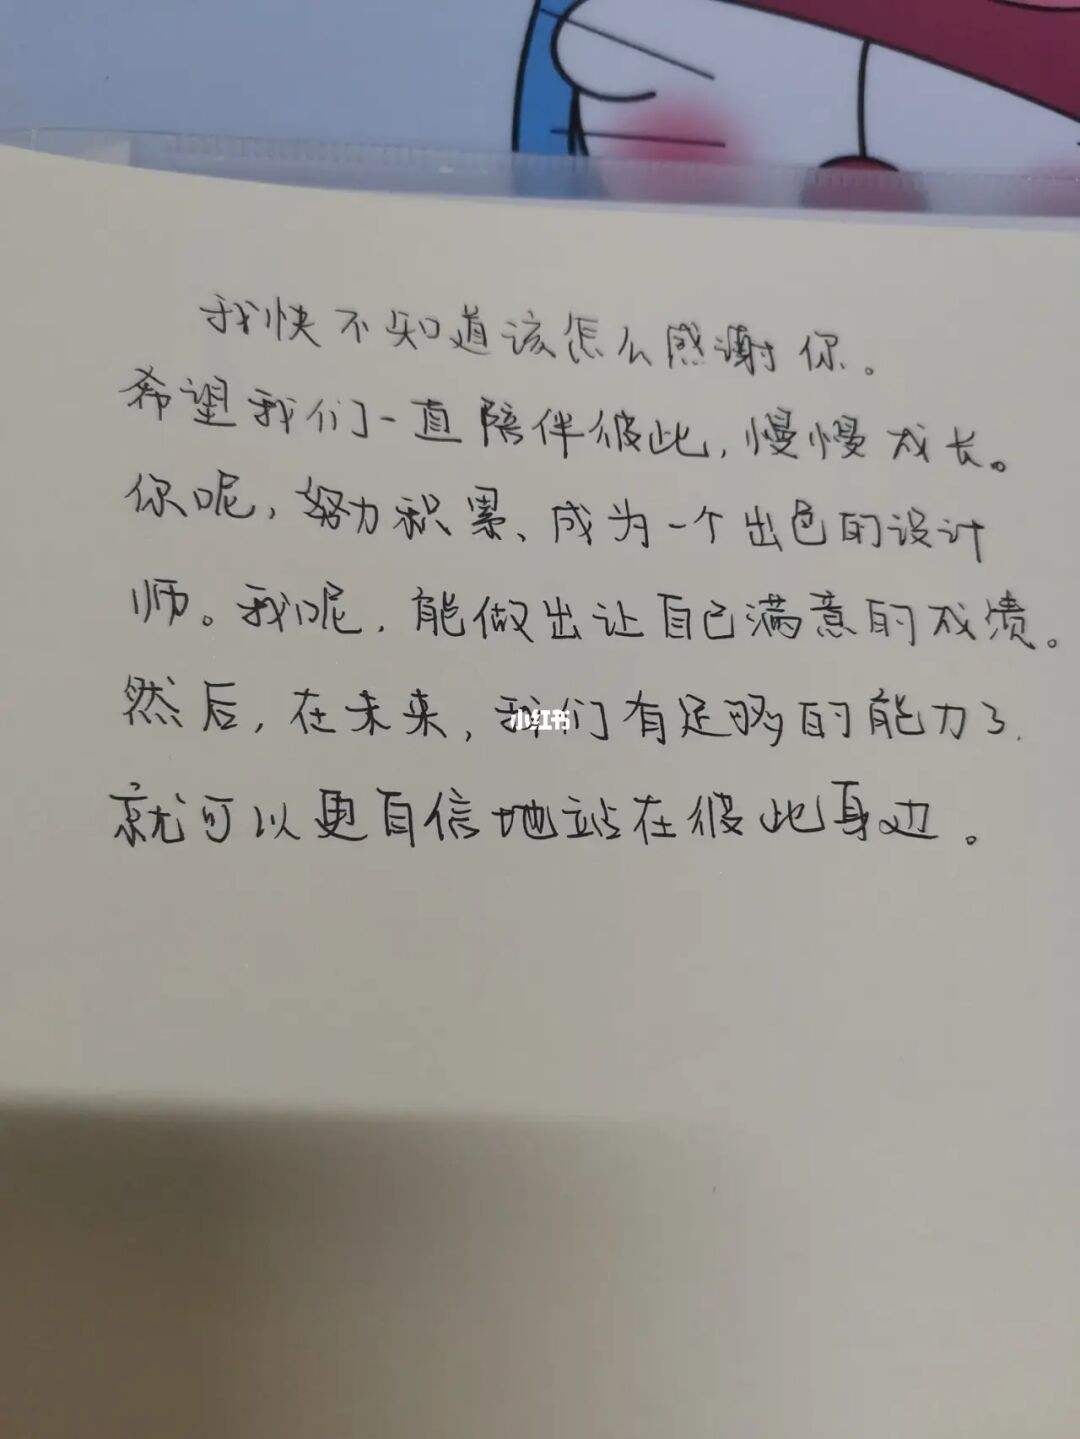 我快不知道该怎么感谢你。
希望我们一直陪伴彼此,慢慢成长。
你呢,努力积累、成为一个出色的设计
师。我呢,能做出让自己满意的成绩。
然后,在未来,我们有足够的能力了,
小红书
就可以更自信地站在彼此身边。